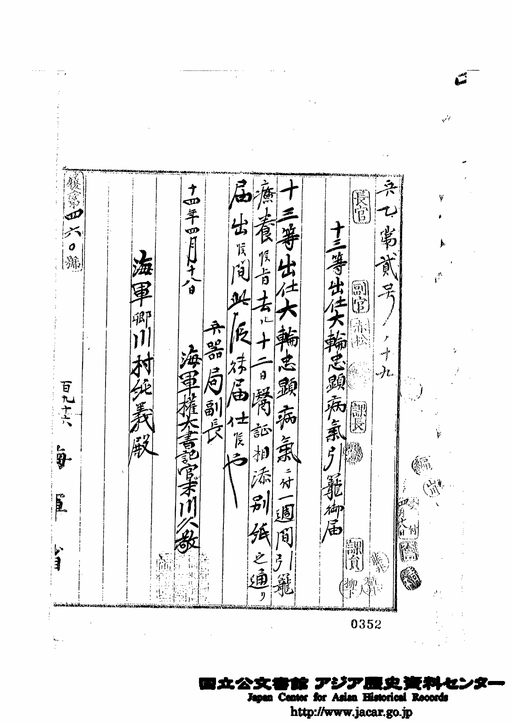 兵乙第貳号ノ十九
長官
副官
課長
課員
十三等出仕大輪忠顕病氣引籠御届
十三等出仕大輪忠顕病氣ニ付一週間引籠
療養候旨去ル十二日醫証相添別紙之通リ
届出候間此段御届仕候也
兵器局副長
十四年四月十八日
海軍權大書記官末川久敬
海軍卿川村純義殿
百九十六
海軍省
0352
国立公文書館 アジア歴史資料センター
Japan Center for Asian Historical Records
http://www.jacar.go.jp